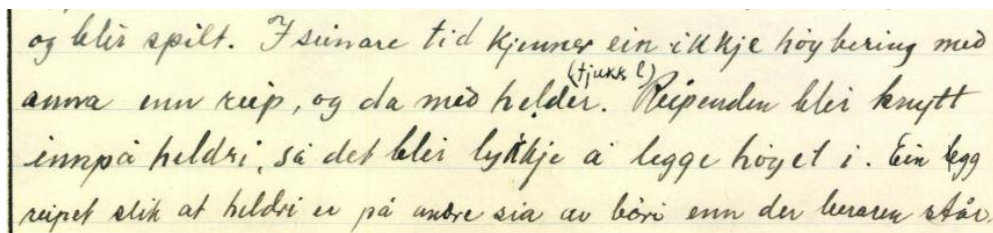 og blir spilt. I seinare tid kjenner ein ikkje høybering med
anna enn reip, og da med helder. (tjukk l) Reipenden blir knytt
innpå heldri, så det blir lykkje å legge høyet i. Ein legg
reipet slik at heldri er på andre sia av böri enn der beraren står.